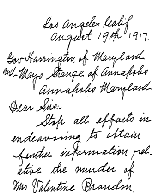 Los Angeles Calif
August 19th 1917.
Gov Harrington of Maryland
and Mayor Strange of Annapolis
Annapolis Maryland
Dear Sir.
Stop all efforts in
endeavoring to obtain
further information rel-
ative the murder of
Mrs Valentine Brandon